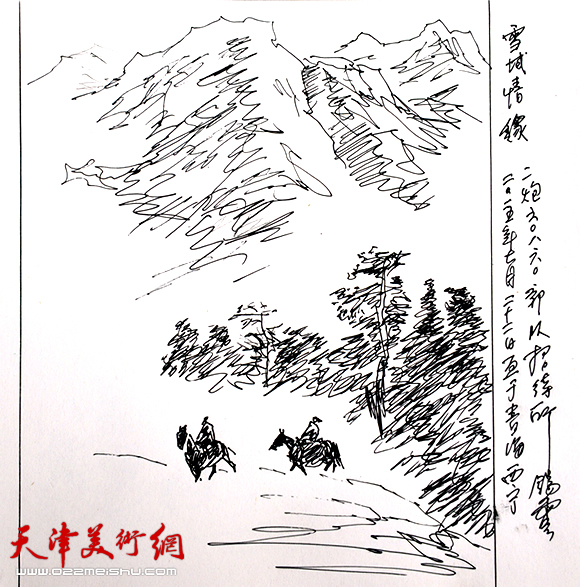 雪域情缘
二炮六〇八六〇部队招待所 鹏云
二〇一五年七月二十二日画于青海西宁
天津美術網
www.022meishu.com